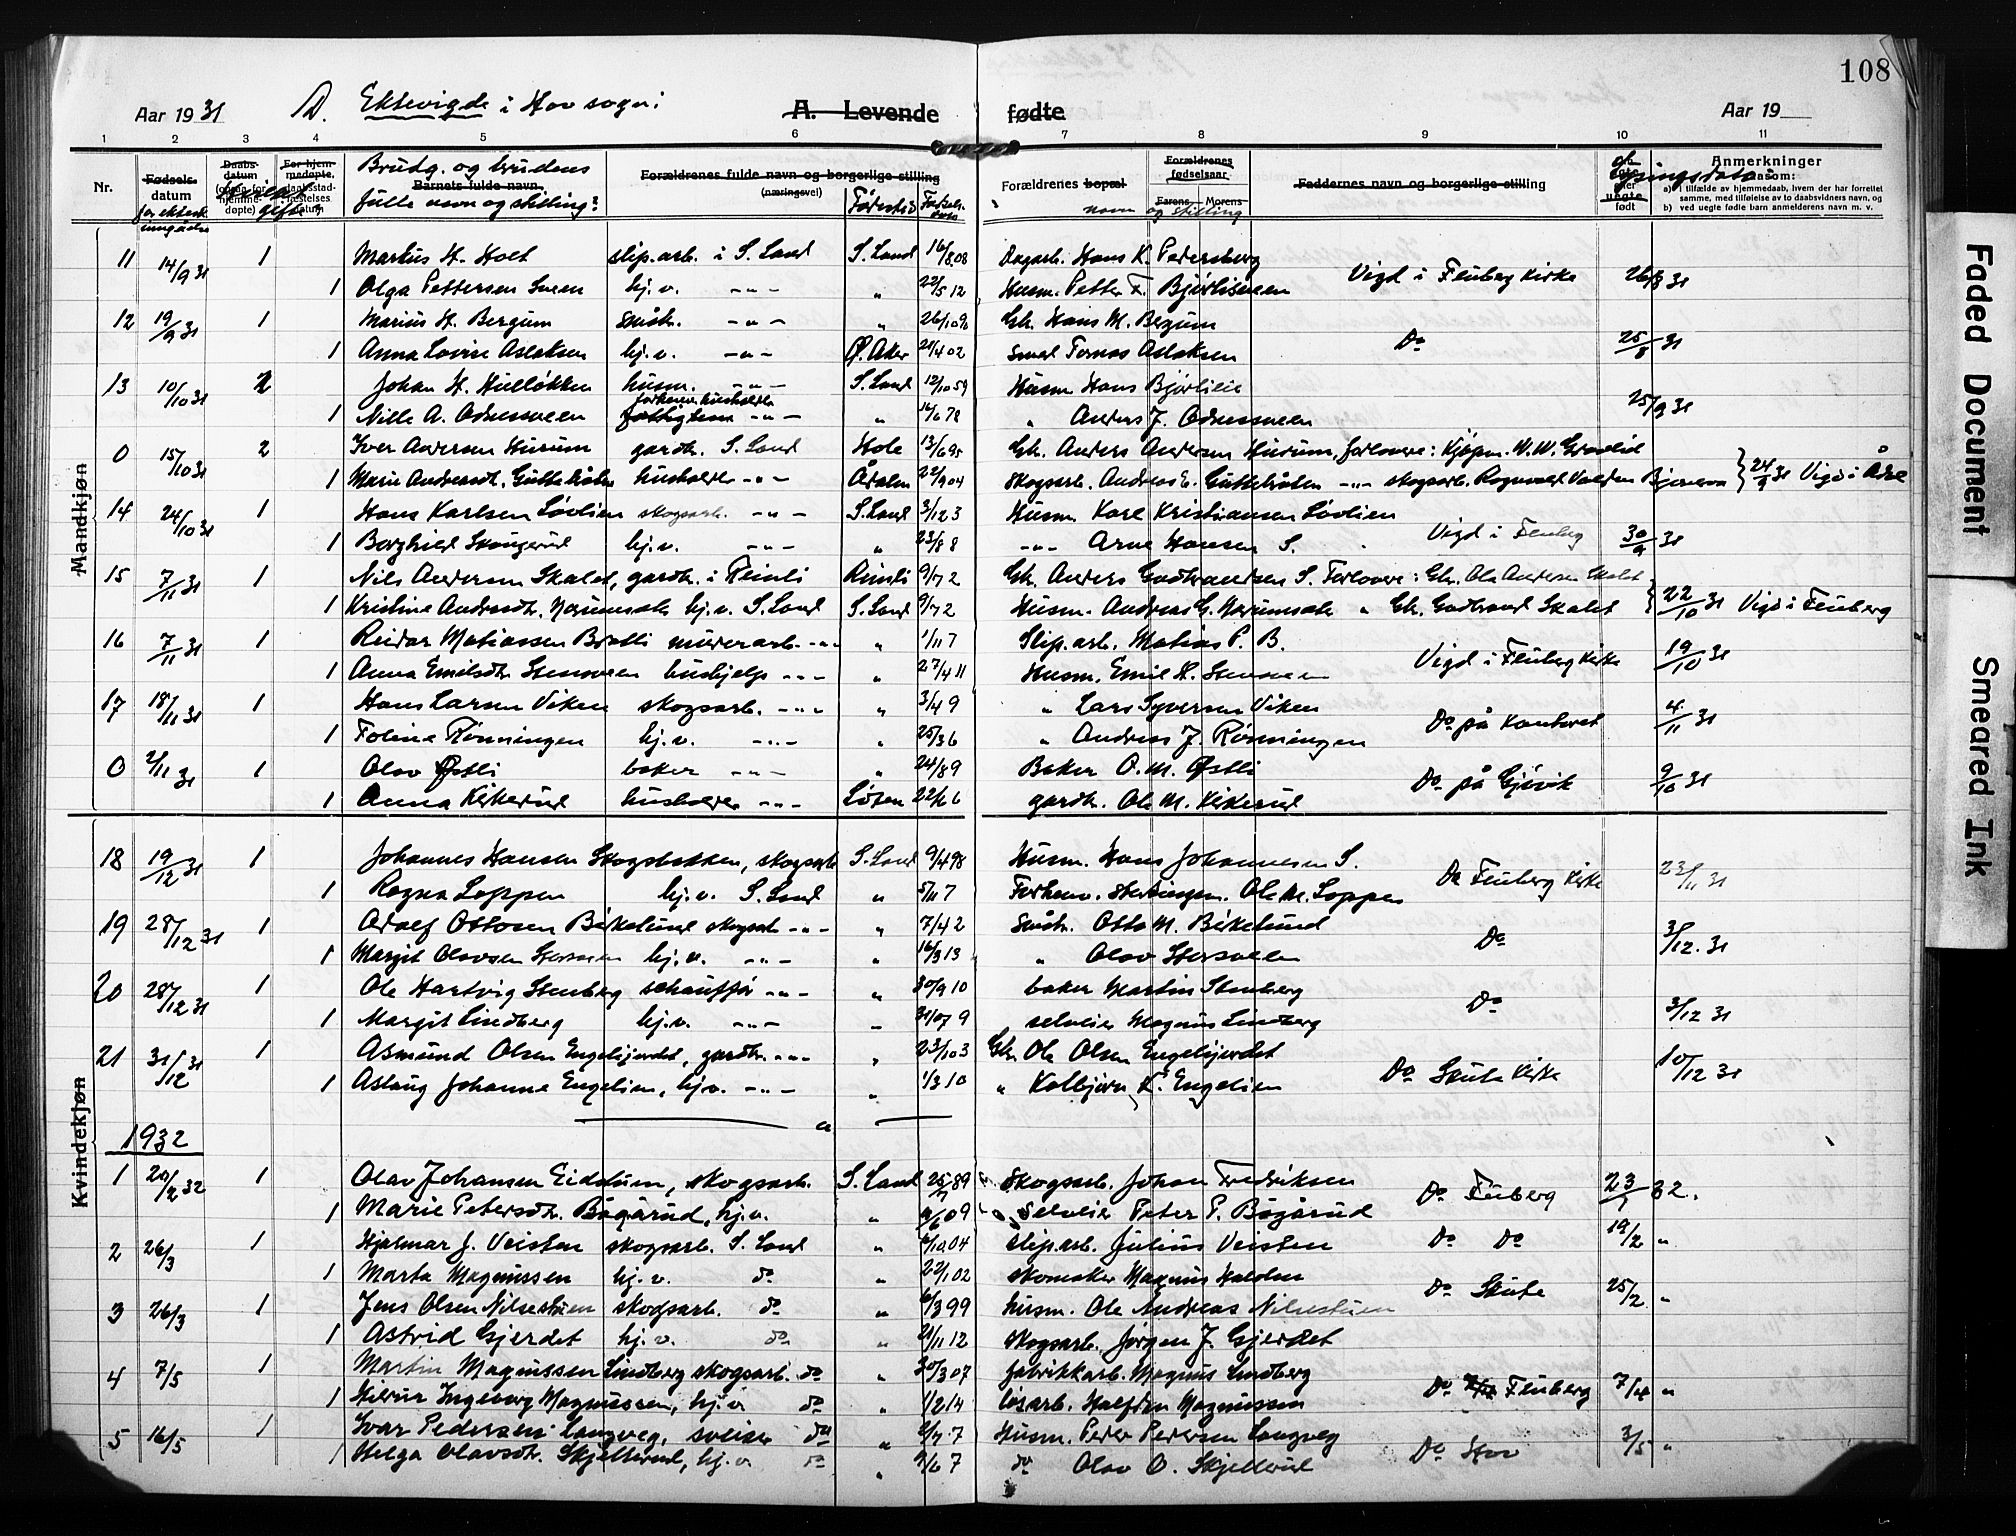 108
Aar 1931 D. Ektevigde i Hov sogn: A. Levende fødte Aar 19
1 2 3 4 5 6 7 8 9 10 11
Nr. Fødsels- datum Daabs- datum For hjem- medøpte, Brudg. og brudens fulle navn og stilling: Barnets fulde navn. Forældrenes fulde navn og borgerlige stilling (næringsvei) Fødested Forældrenes bopæl navn og stilling Forældrenes fødselsaar Farens Morens Faddernes navn og borgerlige stilling lysingsdato: Anmerkninger saasom:
a) i tilfælde av hjemmedaab, hvem der har forrettet samme, med tilføielse av to daabsvidners navn, og
b) ved uegte fødte barn anmelderens navn m. v.
Mandkjøn
11 14/9 31 1 Marius H. Holt slip.arb. i S. Land S. Land 16/8 08 Dagarb. Hans K. Pedersberg
1 Olga Pettersen Sveen hj.v. -"- " 22/5 12 Husm. Petter F. Bjørlisveen Vigd i Fluberg Kirke 26/8 31
12 19/9 31 1 Marius H. Bergum småbr. -"- " 26/10 96 Gbr. Hans M. Bergum
1 Anna Lovise Aslaksen hj.v. -"- Ø. Aker 21/4 02 Smed Tomas Aslaksen Do 25/8 31
13 10/10 31 2 Johan H. Hulløkken husm. -"- S. Land 12/10 59 Husm. Hans Bjørlien
1 Nille A. Odnessveen -"- " 16/6 78 " Anders J. Odnessveen 25/9 31
0 15/10 31 2 Iver Andersen Hurum gardbr. S. Land Hole 13/6 95 Gbr. Anders Andersen Hurum, forlovere: Kjøpm. W. W. Granlid
1 Marie Andreasdt. Guttelråten husholder -"- Ådalen 22/9 04 Skogsarb. Andreas E. Guttelråten -"- skogsarb. Ragnvald Valdem Bjørnerva 24/9 31 Vigd i Ådal
14 24/10 31 1 Hans Karlsen Løvlien skogsarb. -"- S. Land 3/12 3 Husm. Karl Kristiansen Løvlien
1 Borghild Skaugerud hj.v. -"- " 23/8 8 -"- Arne Hansen S. Vigd i Fluberg 30/9 31
15 7/11 31 1 Nils Andersen Skalet, gardbr. i Reinli Reinli 9/7 2 Gbr. Anders Gudbrandsen S. Forlovere: Gbr. Ola Andersen Skalet
1 Kristine Andreasdt. Norumsæte hj.v. S. Land S. Land 9/7 2 Husm. Andreas G. Norumsæte " Gbr. Gudbrand Skalet 22/10 31 Vigd i Fluberg
16 7/11 31 1 Reidar Matiassen Bratli murerarb. -"- " 1/11 7 Slip.arb. Matias P. B.
1 Anna Emilsdt. Stensveen hushjelp -"- " 27/4 11 Husm. Emil H. Stensveen Vigd i Fluberg Kirke 19/10 31
17 18/11 31 1 Hans Larsen Viken skogsarb. -"- " 3/4 9 " Lars Syversen Viken
1 Toline Rønningen hj.v. -"- " 25/3 6 " Andreas J. Rønningen Do på kontoret 4/11 31
0 2/11 31 1 Olav Østli baker -"- " 24/8 9 Baker O. M. Østli
1 Anna Kirkerud husholder -"- Løten 22/6 6 gardbr. Ole M. Kirkerud Do på Gjøvik 9/10 31
Kvindekjøn
18 19/12 31 1 Johannes Hansen Skogsbakken, skogsarb. S. Land 9/4 98 Husm. Hans Johannesen S.
1 Ragna Loppen hj.v. S. Land " 5/11 7 Forhenv. Ole M. Loppen Do Fluberg Kirke 23/11 31
19 28/12 31 1 Adolf Ottosen Birkelund skogsarb. -"- " 7/4 2 Småbr. Otto M. Birkelund
1 Margit Olavsen Storsveen hj.v. -"- " 16/3 13 " Olav Storsveen Do 3/12. 31
20 28/12 31 1 Ole Hartvig Stenberg schauffør -"- " 30/9 10 baker Martin Stenberg
1 Margit Lindberg hj.v. -"- " 31/07 9 selveier Magnus Lindberg Do 3/12 31
21 31/12 31 1 Asmund Olsen Engelijordet, gardbr. -"- " 23/10 3 Gbr. Ole Olsen Engelijordet
1 Aslaug Johanne Engelien, hj.v. -"- " 1/3 10 " Kolbjørn K. Engelien Do Skute Kirke 10/12 31
1932
1 20/2 32 1 Olav Johansen Eidstuen, skogsarb. S. Land 25/7 89 Skogsarb. Johan Fredriksen
1 Marie Petersdt. Bøgårud, hj.v. " 4/6 09 Selveier Peter P. Bøgårud Do Fluberg 23/1 32.
2 26/3 1 Hjalmar J. Veisten skogsarb. S. Land " 6/10 04 Slip.arb. Julius Veisten Do Do 19/2 "
1 Marta Magnussen hj.v. do " 22/1 02 skomaker Magnus Halden
3 26/3 1 Jens Olsen Nilsestuen skogsarb. do " 6/3 99 husm. Ole Andreas Nilsestuen Do Skute 25/2 "
1 Astrid Gjerdet hj.v. do " 21/11 12 Skogsarb. Jørgen J. Gjerdet
4 7/5 1 Martin Magnussen Lindberg skogsarb. do " 30/3 07 fabrikkarb. Magnus Lindberg
1 Ingeborg Magnussen, hj.v do " 1/2 14 løsarb. Halfdan Magnussen Do Fluberg 7/4 "
5 16/5 1 Ivar Pedersen Langveg, sveiser do " 2/7 7 Husm. Peder Pedersen Langveg
1 Helga Olavsdt. Skjellerud, hj.v do " 9/6 7 do Olav O. Skjellerud Do Hov 3/5 "
Faded Document
Smeared Ink